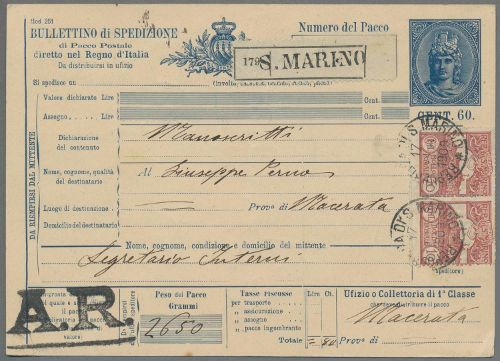 Mod. 251
BULLETTINO di SPEDIZIONE
di Pacco Postale
diretto nel Regno d'Italia
Da distribuirsi in ufizio
Numero del Pacco
179
S. MARINO
Si spedisce un
CENT. 60.
Valore dichiarato Lire
Cent.
Assegno, Lire
Cent.
DA RIEMPIRSI DAL MITTENTE
Dichiarazione del contenuto
Manoscritti
Nome, cognome, qualità del destinatario
Al Giuseppe Perno
Luogo di destinazione
Prov.a Macerata
Domicilio del destinatario
Nome, cognome, condizione e domicilio del mittente
Segretario Interni
A.R.
Peso del Pacco
Grammi
2650
Tasse riscosse
per trasporto
" assicurazione
" assegno
" pacco ingombrante
Totale
Lire
Ct.
80
Ufizio o Collettoria di 1ª Classe
Macerata
Prov.a di